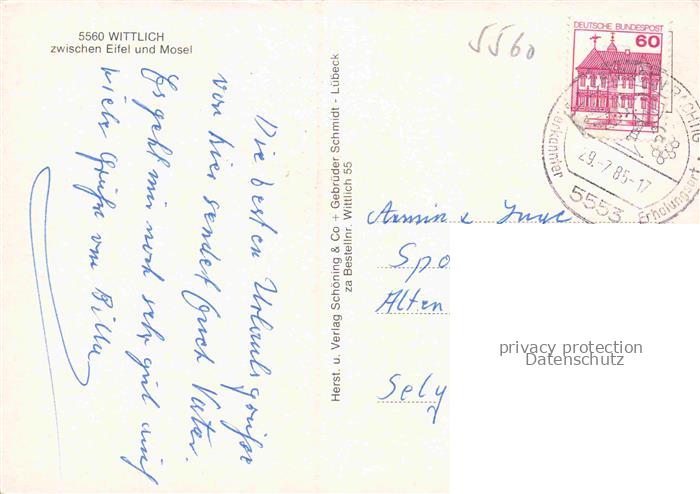 5560 WITTLICH
zwischen Eifel und Mosel
Die besten Urlaubsgrüße
von hier sendet Euch Vater.
Es geht mir noch sehr gut auf
viele Grüße von Billa
Herst. u. Verlag Schöning & Co + Gebrüder Schmidt - Lübeck
za Bestellnr. Wittlich 55
5560
DEUTSCHE BUNDESPOST
60
29.-7.85-17
5553
Erholungsort
Armin & Inge
Spo
Alten
Sely
privacy protection
Datenschutz